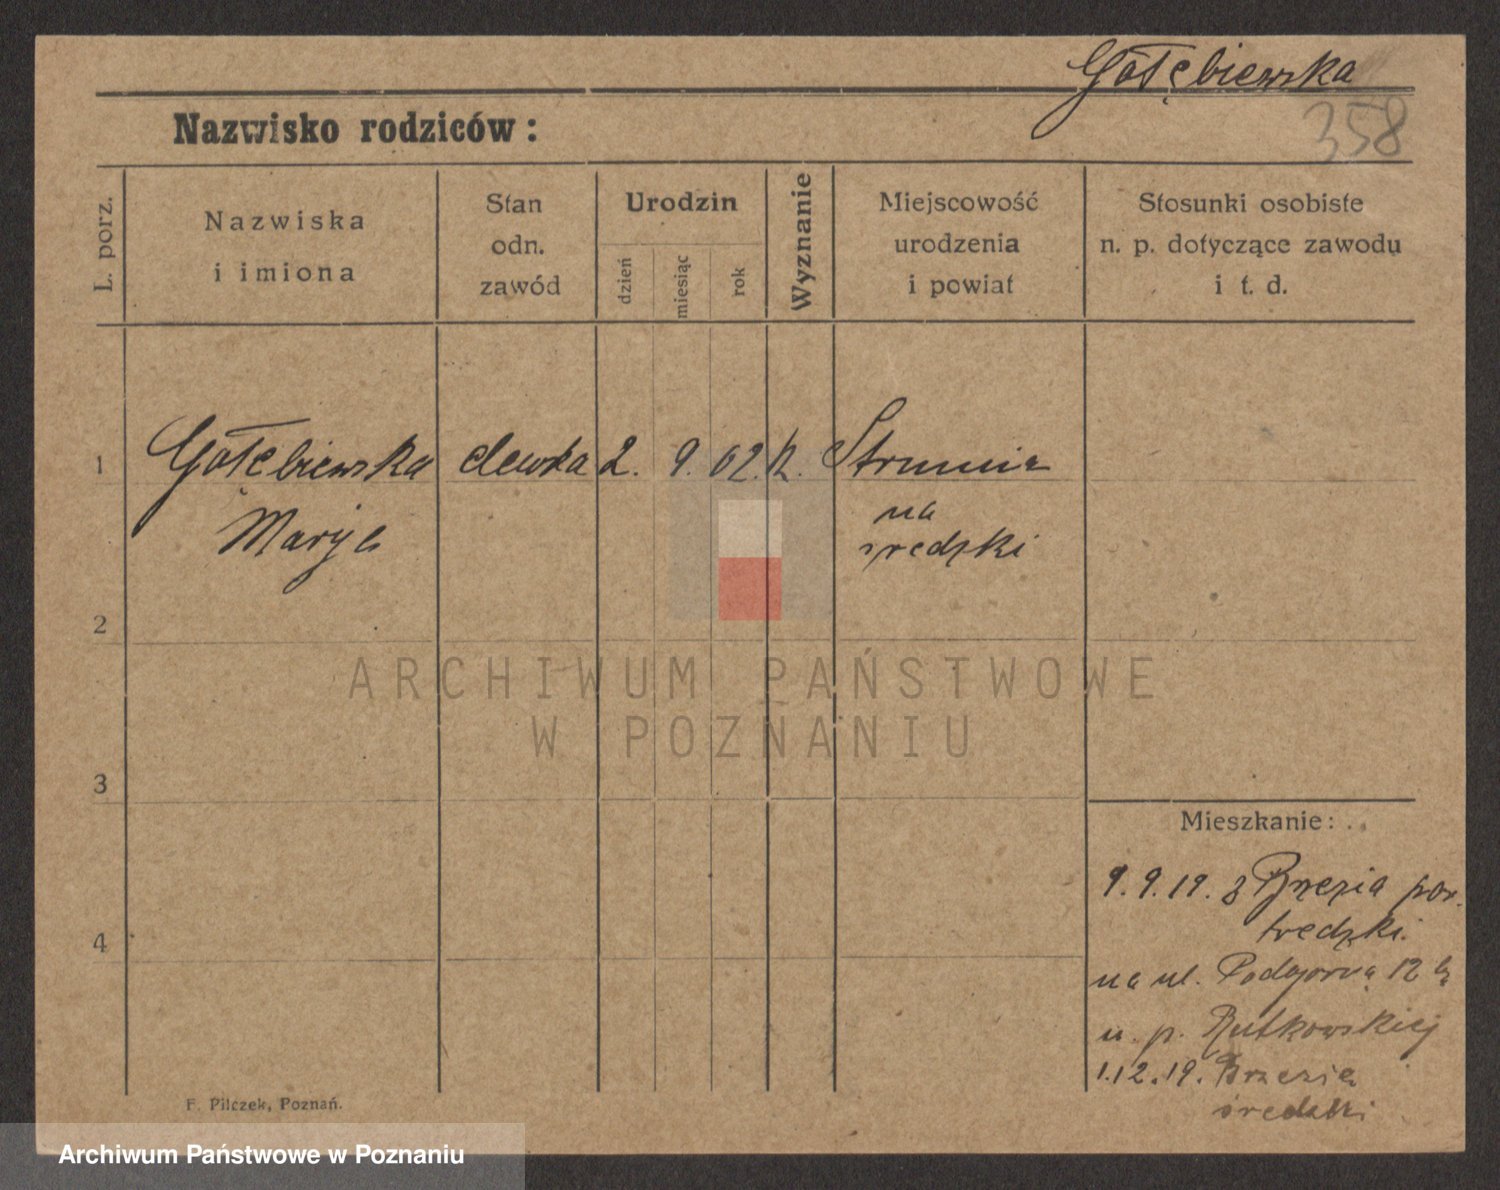 Gołębiewska
358
Nazwisko rodziców:
L. porz.
Nazwiska
i imiona
Stan
odn.
zawód
Urodzin
dzień
miesiąc
rok
Wyznanie
Miejscowość
urodzenia
i powiat
Stosunki osobiste
n. p. dotyczące zawodu
i t. d.
1
Gołębiewska
Marya
2. 9. 02. k.
na
średzki
2
ARCHIWUM PAŃSTWOWE
W POZNANIU
3
Mieszkanie:
9.9.19. z Brzezia pow.
średzki.
4
na ul. Podgórną 12 b
u. p. Rutkowskiej
1.12.19. Brzezie
średzki
F. Pilczek, Poznań.
Archiwum Państwowe w Poznaniu